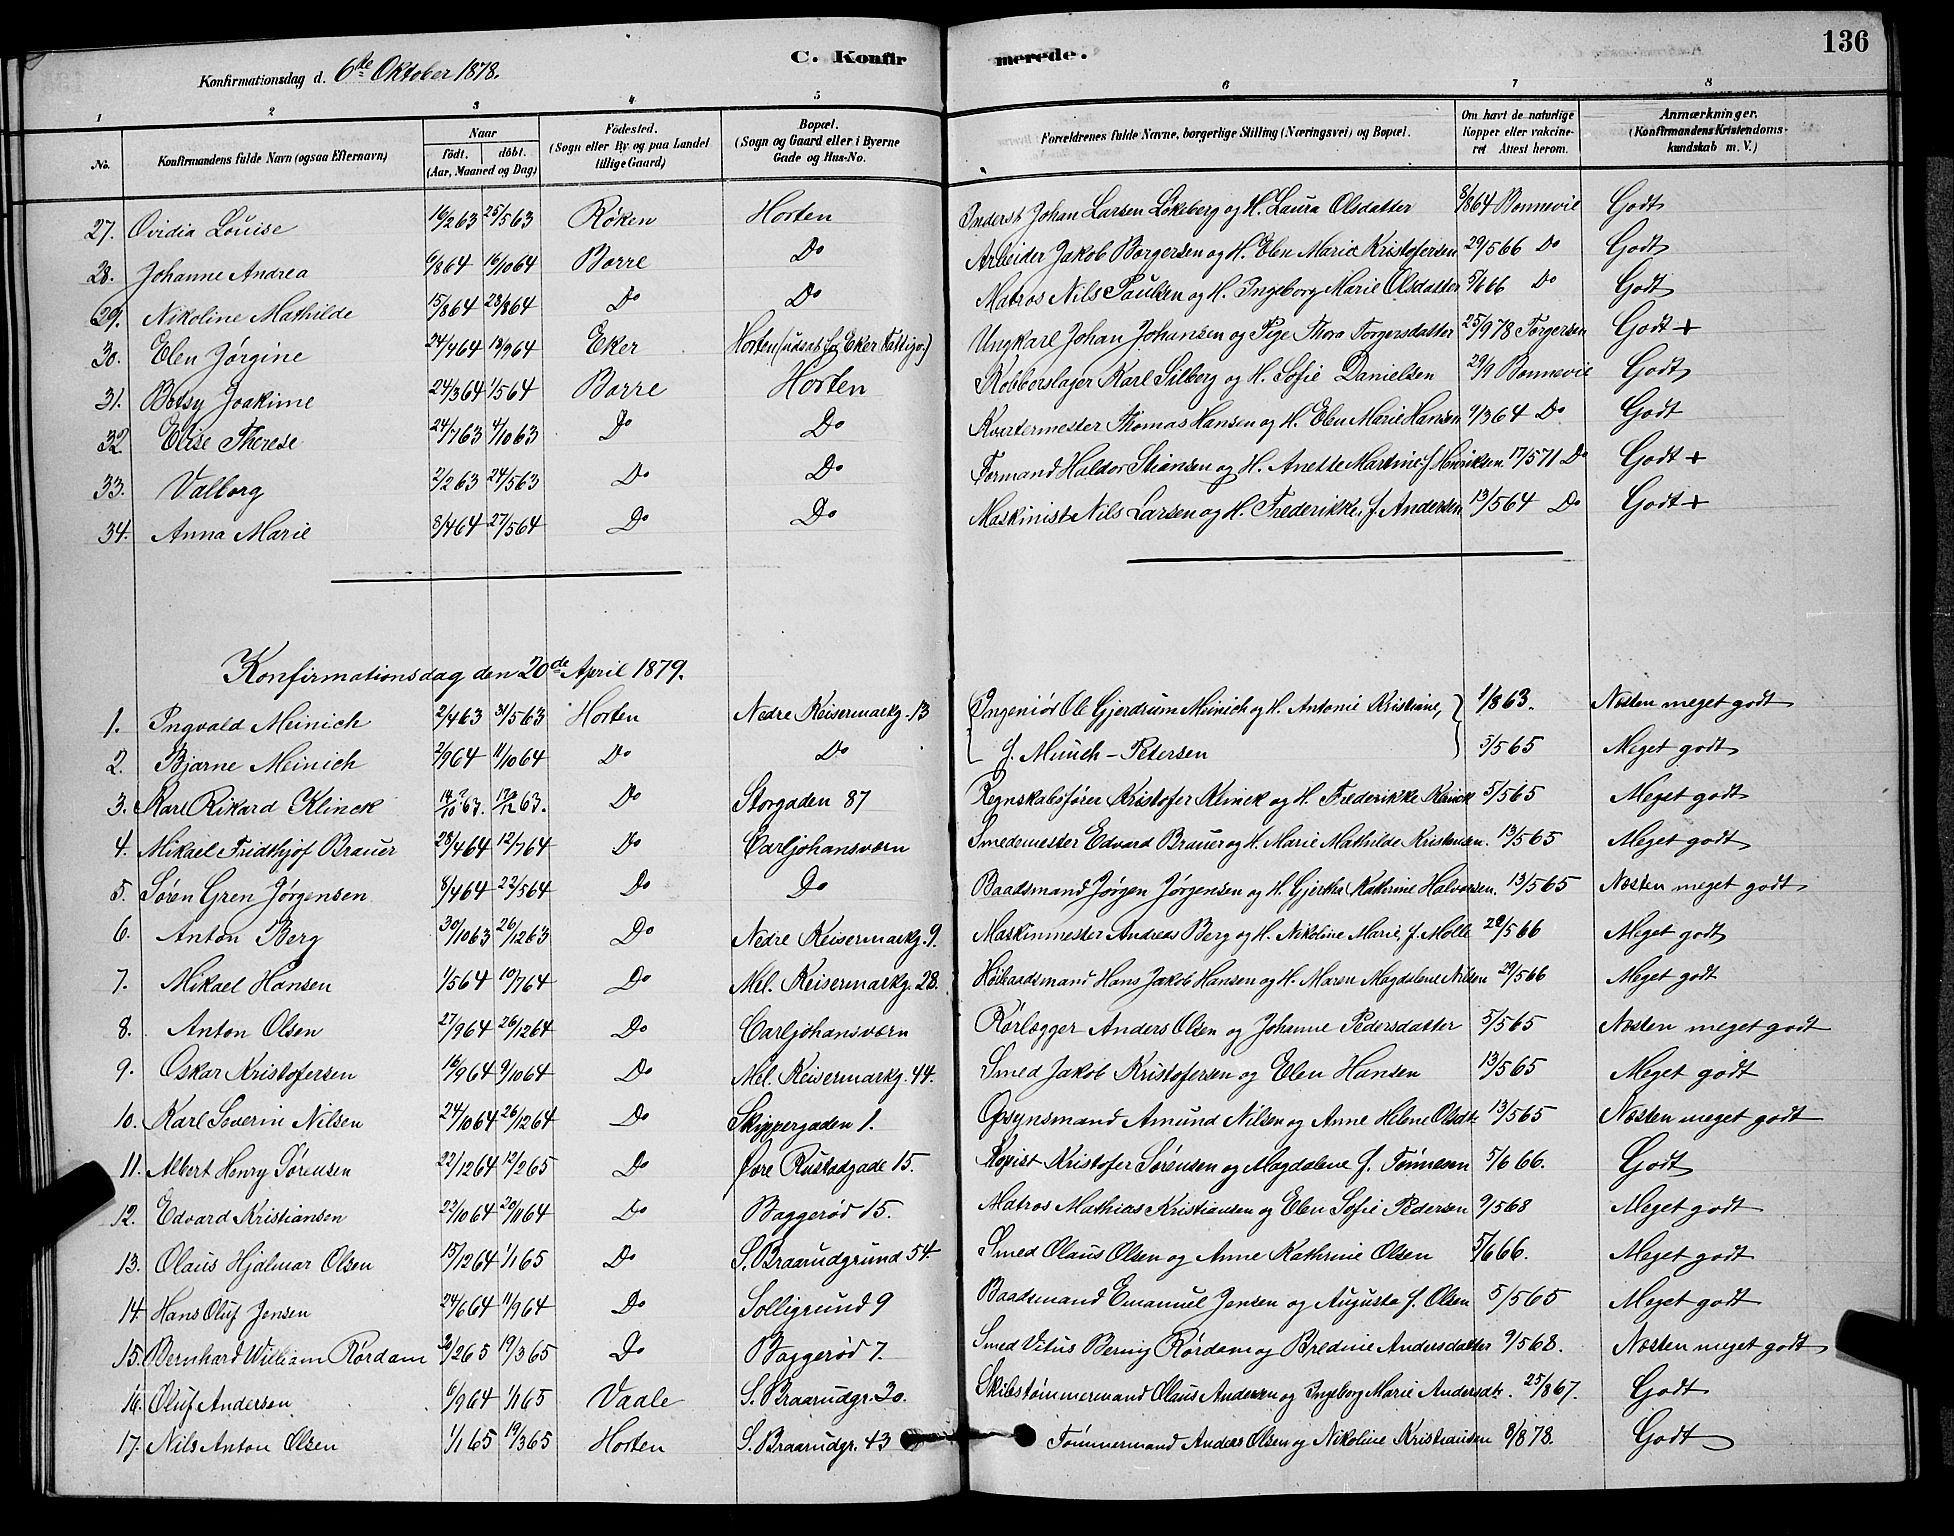 136
C. Konfirmerede.
Konfirmationsdag d. 6te Oktober 1878.
1 2 3 4 5 6 7 8
No. Konfirmandens fulde Navn (ogsaa Efternavn) Naar födt. döbt. (Aar, Maaned og Dag) Födested. (Sogn eller By og paa Landet tillige Gaard) Bopæl. (Sogn og Gaard eller i Byerne Gade og Hus-No. Forældrenes fulde Navne, borgerlige Stilling (Næringsvei) og Bopæl. Om havt de naturlige Kopper eller vakcineret Attest herom. Anmærkninger. (Konfirmandens Kristendomskundskab m. V.)
27. Ovidia Louise 16/2 63 25/5 63 Røken Horten Inderst Johan Larsen Løkeberg og H. Laura Olsdatter 8/8 64 Bonnevie Godt
28. Johanne Andrea 6/8 64 16/10 64 Borre Do Arbeider Jakob Borgersen og H. Elen Marie Kristofersen 29/5 66 Do Godt
29. Nikoline Mathilde 15/8 64 28/8 64 Do Do Matros Nils Paulsen og H. Ingeborg Marie Olsdatter 5/6 66 Do Godt
30. Elen Jørgine 24/4 64 13/9 64 Eker Horten (udsat fg Eker Fattigv.) Ungkarl Johan Johansen og Pige Thora Torgersdatter 25/9 78 Torgersen Godt +
31. Betsy Joakime 24/3 64 1/5 64 Borre Horten Kobberslager Karl Silberg og H. Sofie Danielsen 29/9 Bonnevie Godt
32 Elise Therese 24/7 63 4/10 63 Do Do Kvartermester Thomas Hansen og H. Elen Marie Hansen 9/3 64 Do Godt
33. Valborg 2/2 63 24/5 63 Do Do Formand Haldor Stiansen og H. Anette Martine f. Henriksen 17/5 71 Do Godt +
34. Anna Marie 8/4 64 27/5 64 Do Do Maskinist Nils Larsen og H. Frederikke, f. Andersen 13/5 64 Do Godt +
Konfirmationsdag den 20de April 1879.
1. Ingvald Meinich 2/4 63 31/5 63 Horten Nedre Keisermarkg. 13 Ingeniør Ole Gjerdrum Meinich og H. Antonie Kristiane, 1/8 63. Næsten meget godt
2. Bjarne Meinich 2/9 64 11/10 64 Do Do f. Munch-Petersen 5/5 65 Meget godt
3. Karl Rikard Klinck 63. 63. Do Storgaden 87 Regnskabsfører Kristofer Klinck og H. Frederikke Klinck 5/5 65 Meget godt
4. Mikael Fridthjof Brauer 28/4 64 12/7 64 Do Carljohansværn Smedemester Edvard Brauer og H. Marie Mathilde Kristensen. 13/5 65 Meget godt
5. Søren Gren Jørgensen 8/4 64 22/5 64 Do Do Baadsmand Jørgen Jørgensen og H. Gjertha Kathrine Halvorsen. 13/5 65 Næsten meget godt
6. Anton Berg 30/10 63 26/12 63 Do Nedre Keisermarkg. 9. Maskinmester Andreas Berg og H. Nikoline Marie, f. Molle 29/5 66 Meget godt
7. Mikael Hansen 1/5 64 10/7 64 Do Mel. Keisermarkg. 28. Høibaadsmand Hans Jakob Hansen og H. Maren Magdalene Nilsen 29/5 66 Meget godt
8. Anton Olsen 27/9 64 26/12 64 Do Carljohansværn Rørlægger Anders Olsen og Johanne Pedersdatter 5/5 65 Næsten meget godt
9. Oskar Kristofersen 16/9 64 9/10 64 Do Mel. Keisermarkg. 44. Smed Jakob Kristofersen og Elen Hansen 13/5 65 Meget godt
10. Karl Severin Nilsen 24/10 64 26/12 64 Do Skippergaden 1. Opsynsmand Amund Nilsen og Anne Helene Olsdt. 13/5 65 Næsten meget godt
11. Albert Henry Sørensen 22/12 64 12/2 65 Do Øvre Rustadgade 15. Kopist Kristofer Sørensen og Magdalene f. Tønnesen 5/6 66. Godt
12. Edvard Kristiansen 22/10 64 20/11 64 Do Baggerød 15. Matros Mathias Kristiansen og Elen Sofie Pedersen 9/5 68 Meget godt
13. Olaus Hjalmar Olsen 15/12 64 1/1 65 Do S. Braarudgrund 54. Smed Olaus Olsen og Anne Kathrine Olsen 5/6 66. Meget godt
14. Hans Oluf Jensen 24/6 64 11/9 64 Do Solligrund 9 Baadsmand Emanuel Jensen og Augusta f. Olsen 5/5 65 Meget godt
15. Bernhard William Rørdam 2/2 65 19/3 65 Do Baggerød 7. Smed Vitus Bering Rørdam og Bredine Andersdatter 9/5 68. Næsten meget godt
16. Oluf Andersen 6/9 64 1/1 65 Vaale S. Braarudgr. 30. Skibstømmermand Olaus Andersen og Ingeborg Marie Andersdt. 25/8 67. Godt
17. Nils Anton Olsen 1/1 65 19/3 65 Horten S. Braarudgr. 43 Tømmermand Anders Olsen og Nikoline Kristiansen 8/8 78. Godt